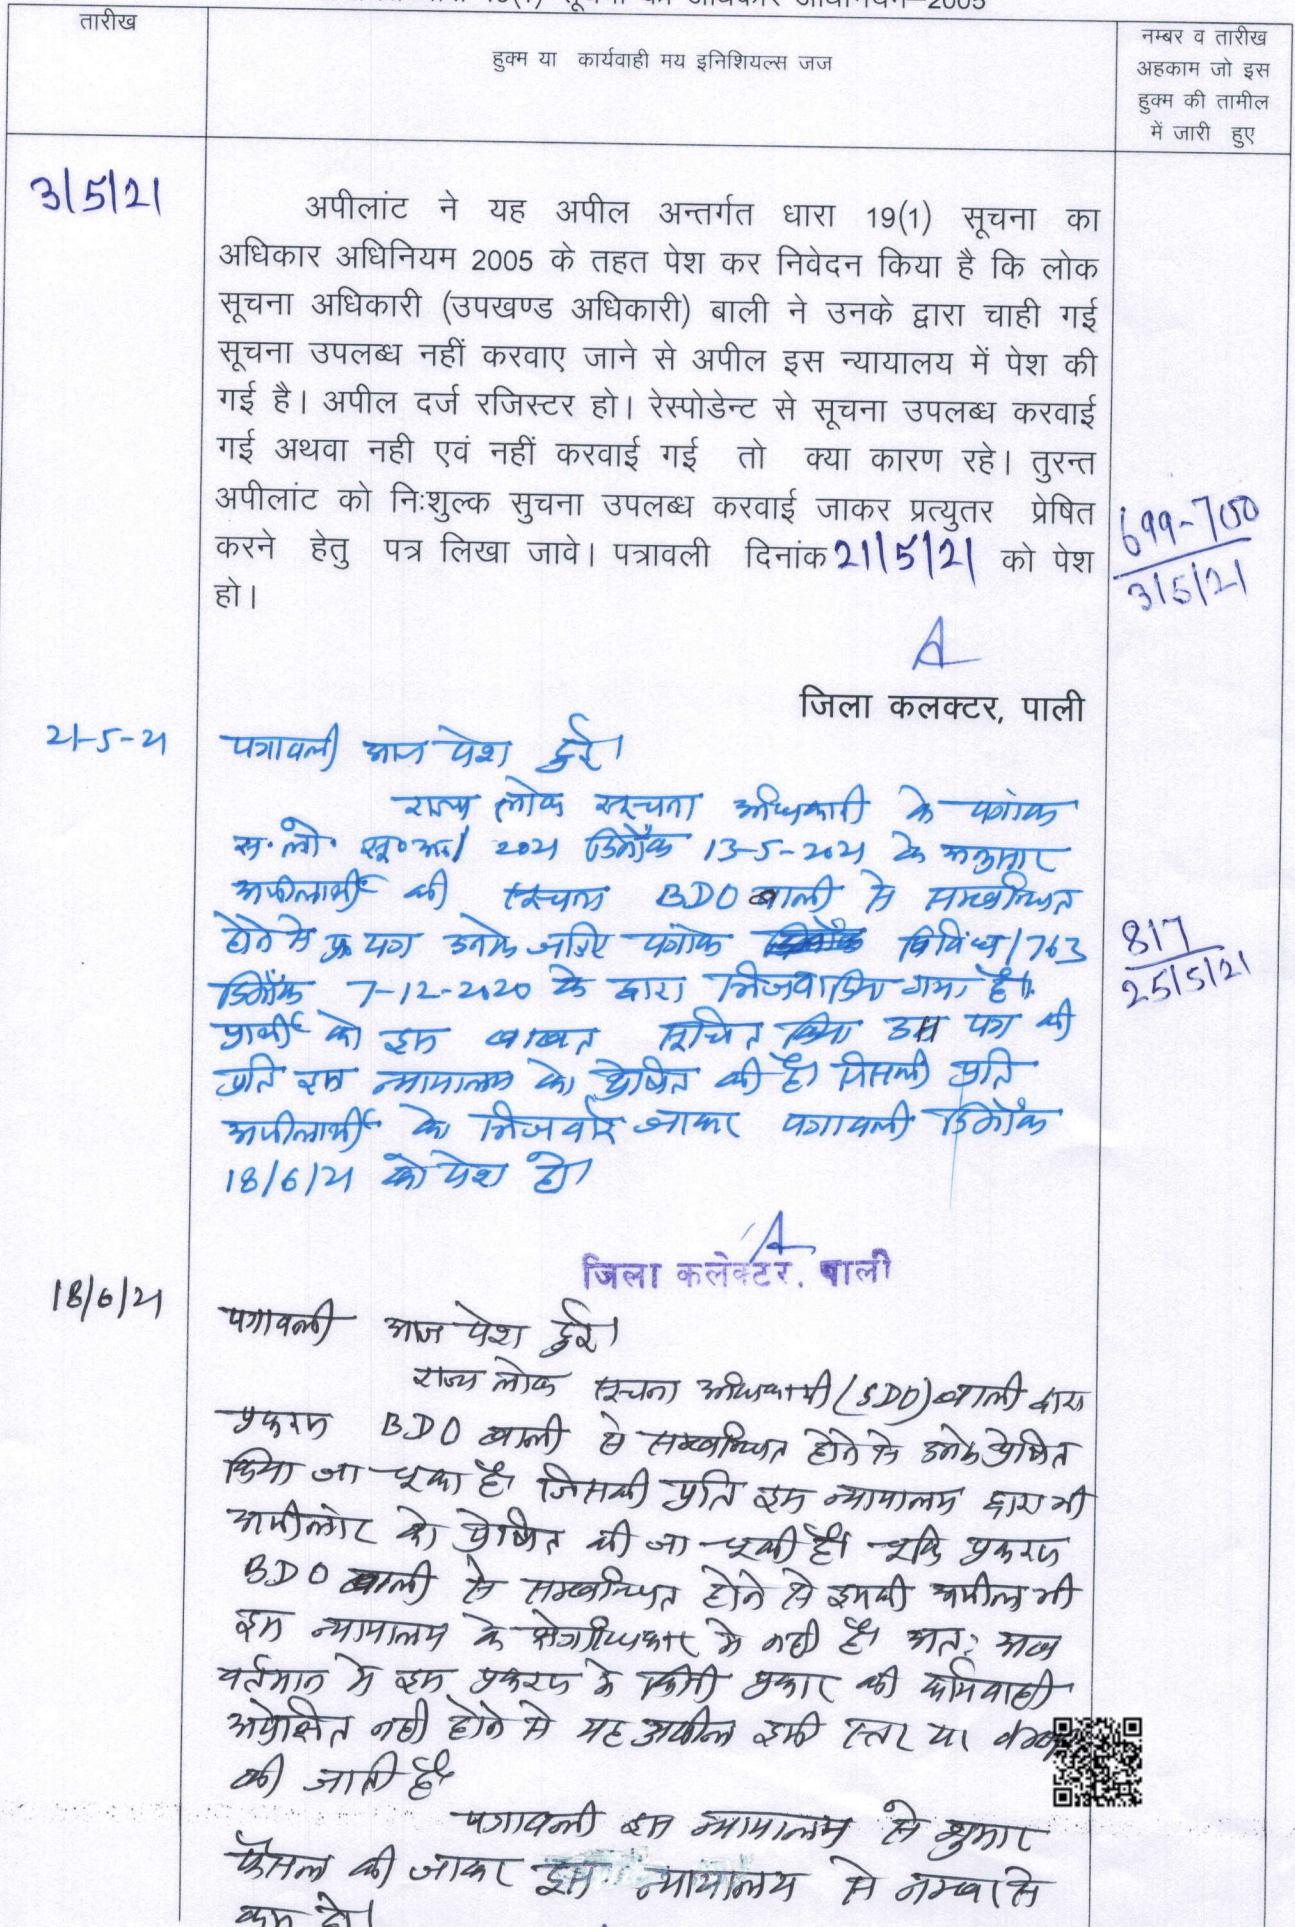 सूचना का अधिकार अधिनियम–2005
तारीख
हुक्म या कार्यवाही मय इनिशियल्स जज
नम्बर व तारीख
अहकाम जो इस
हुक्म की तामील
में जारी हुए
3/5/21
अपीलांट ने यह अपील अन्तर्गत धारा 19(1) सूचना का
अधिकार अधिनियम 2005 के तहत पेश कर निवेदन किया है कि लोक
सूचना अधिकारी (उपखण्ड अधिकारी) बाली ने उनके द्वारा चाही गई
सूचना उपलब्ध नहीं करवाए जाने से अपील इस न्यायालय में पेश की
गई है। अपील दर्ज रजिस्टर हो। रेस्पोडेन्ट से सूचना उपलब्ध करवाई
गई अथवा नही एवं नहीं करवाई गई तो क्या कारण रहे। तुरन्त
अपीलांट को निःशुल्क सुचना उपलब्ध करवाई जाकर प्रत्युतर प्रेषित
करने हेतु पत्र लिखा जावे। पत्रावली दिनांक 21/5/21 को पेश
हो।
699-700
3/5/21
जिला कलक्टर, पाली
21-5-21
पत्रावली आज पेश हुई।
राज्य लोक सूचना अधिकारी के पत्रांक
स.लो.सू.अ./2021 दिनांक 13-5-2021 के अनुसार
अपीलार्थी की सूचना BDO बाली से सम्बन्धित
होने से पत्र उनके जरिए पत्रांक विविध/763
दिनांक 7-12-2020 के द्वारा भिजवा दिया गया है।
प्रार्थी को इस बाबत सूचित किया उस पत्र की
प्रति इस न्यायालय को प्रेषित की है। जिसकी प्रति
अपीलार्थी को भिजवाई जाकर पत्रावली दिनांक
18/6/21 को पेश हो।
817
25/5/21
जिला कलेक्टर, पाली
18/6/21
पत्रावली आज पेश हुई।
राज्य लोक सूचना अधिकारी (SDO) बाली द्वारा
प्रकरण BDO बाली से सम्बन्धित होने से उनको प्रेषित
किया जा चूका है। जिसकी प्रति इस न्यायालय द्वारा भी
अपीलांट को प्रेषित की जा चूकी है। चूंकि प्रकरण
BDO बाली से सम्बन्धित होने से इसकी अपील भी
इस न्यायालय के क्षेत्राधिकार मे नही है। अतः अब
वर्तमान मे इस प्रकरण मे किसी प्रकार की कार्यवाही
अपेक्षित नही होने से यह अपील इसी स्तर पर
की जाती है।
पत्रावली इस न्यायालय से शुमार
फैसल की जाकर इस न्यायालय से नम्बर से
कम हो।